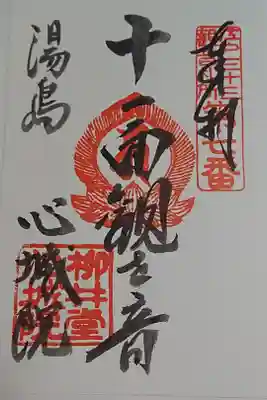 奉拝
第七番
十一面観世音
湯島
心城院
柳井堂
心城院